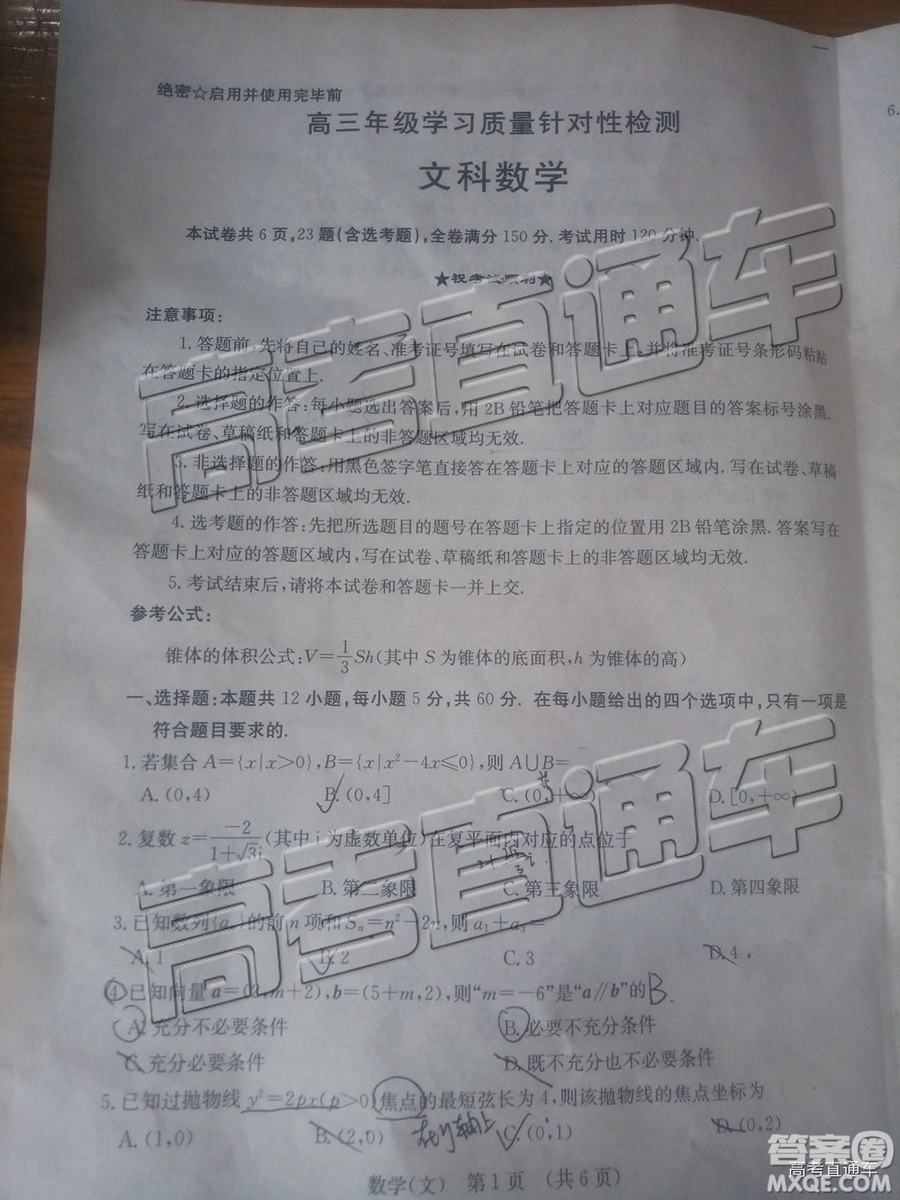 绝密☆启用并使用完毕前
6.
高三年级学习质量针对性检测
文科数学
本试卷共6页,23题(含选考题),全卷满分150分.考试用时120分钟.
★祝考试顺利★
注意事项:
1. 答题前,先将自己的姓名、准考证号填写在试卷和答题卡上,并将准考证号条形码粘贴
在答题卡的指定位置上.
2. 选择题的作答:每小题选出答案后,用2B铅笔把答题卡上对应题目的答案标号涂黑.
写在试卷、草稿纸和答题卡上的非答题区域均无效.
3. 非选择题的作答:用黑色签字笔直接答在答题卡上对应的答题区域内.写在试卷、草稿
纸和答题卡上的非答题区域均无效.
4. 选考题的作答:先把所选题目的题号在答题卡上指定的位置用2B铅笔涂黑.答案写在
答题卡上对应的答题区域内,写在试卷、草稿纸和答题卡上的非答题区域均无效.
5. 考试结束后,请将本试卷和答题卡一并上交.
参考公式:
锥体的体积公式:V=1/3Sh(其中S为锥体的底面积,h为锥体的高)
一、选择题:本题共12小题,每小题5分,共60分. 在每小题给出的四个选项中,只有一项是
符合题目要求的.
1. 若集合A={x|x>0},B={x|x²-4x≤0},则A∪B=
A. (0,4) B. (0,4] C. (0,+∞) D. [0,+∞)
2. 复数z=-2/(1+√3i)(其中i为虚数单位)在复平面内对应的点位于
A. 第一象限 B. 第二象限 C. 第三象限 D. 第四象限
3. 已知数列{aₙ}的前n项和Sₙ=n²-2n,则a₁+a₃=
A. 1 B. 2 C. 3 D. 4
4. 已知向量a=(3,m+2),b=(5+m,2),则“m=-6”是“a∥b”的 B.
A. 充分不必要条件 B. 必要不充分条件
C. 充分必要条件 D. 既不充分也不必要条件
5. 已知过抛物线y²=2px(p>0)焦点的最短弦长为4,则该抛物线的焦点坐标为
A. (1,0) B. (2,0) 在y轴上 C. (0,1) D. (0,2)
数学(文) 第1页 (共6页)
高考直通车
高考直通车
答案圈
MXQE.COM
高考直通车